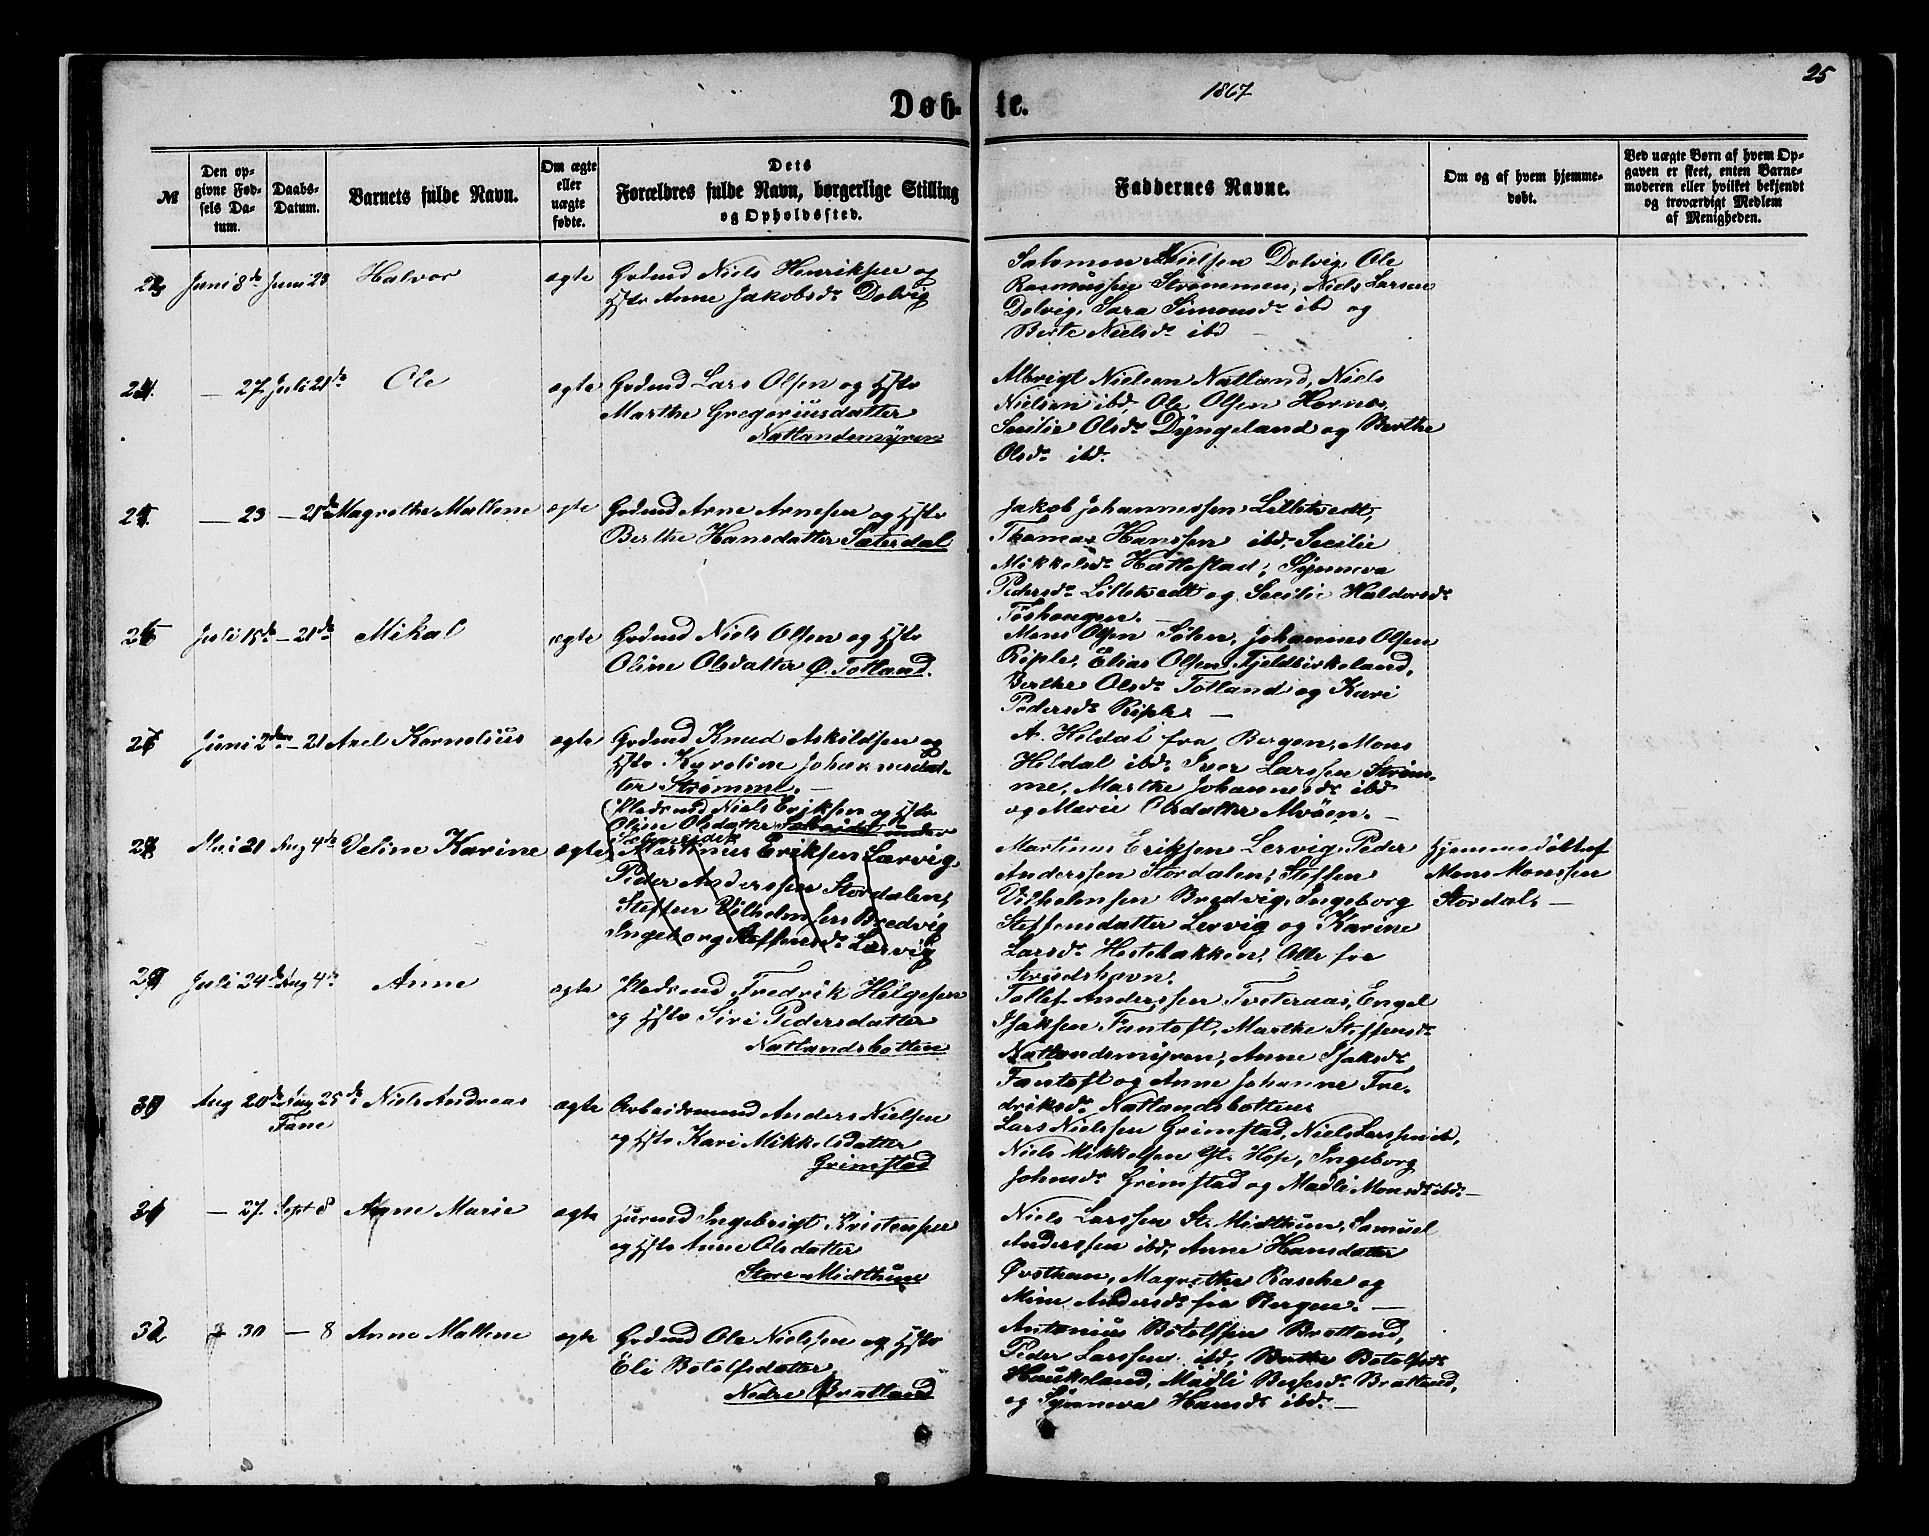 Døb- te.
1867
25
№
Den op-
givne Fød-
sels Da-
tum.
Daabs-
Datum.
Barnets fulde Navn.
Om ægte
eller
uægte
fødte.
Dets
Forældres fulde Navn, borgerlige Stilling
og Opholdssted.
Faddernes Navne.
Om og af hvem hjemme-
døbt.
Ved uægte Børn af hvem Op-
gaven er skeet, enten Barne-
moderen eller hvilket bekjendt
og troværdigt Medlem
af Menigheden.
23 Juni 8de Juni 23 Halvor ægte Grdmd Niels Henriksen og
Hstr Anne Jakobsdr Dolvig
Salomon Nielsen Dolvig, Ole
Rasmussen Strømmen, Niels Larsen
Dolvig, Sara Simonsdr ibd og
Berte Nielsdr ibd
24. — 27 Juli 21de Ole ægte Grdmd Lars Olsen og Hstr
Marthe Gregoriusdatter
Natlandsmyren
Albrigt Nielsen Natland, Niels
Nielsen ibd, Ole Olsen Hornes
Secilie Olsdr Dyngeland og Berthe
Olsdr ibd.
25. — 23 — 21de Magrethe Maltene ægte Grdmd Arne Arnesen og Hstr
Berthe Hansdatter Sæterdal
Jakob Johannessen Lilletvedt,
Thomas Hanssen ibd, Secilie
Mikkelsdr Hatlestad, Synneva
Pedersdr Lilletvedt og Secilie Haldorsdr
26 Juli 15de — 21de Mikal ægte Grdmd Niels Olsen og Hstr
Oline Olsdatter Ø. Totland.
Mons Olsen Søhn, Johannes Olsen
Riple, Elias Olsen Fjeldbirkeland,
Berthe Olsdr Totland og Kari
Pedersdr Riple. —
27 Juni 2den — 21 Axel Kornelius ægte Grdmd Knud Askildsen og
Hstr Karoline Johannesdat-
ter Strømme. —
A. Hildal fra Bergen, Mons
Hildal ibd, Iver Larssen Strøm-
me, Marthe Johannesdr ibd
og Marie Olsdatter Moøen. —
28 Mai 21 Aug 4de Veline Karine ægte
Pladsmd Niels Eriksen og Hstr
Oline Olsdatter
Martinus Eriksen Lærvig,
Peder Anderssen Stordalen,
Steffen Vilhelmsen Bredvig
Ingeborg Steffensdr Lærvig
Martinus Eriksen Lervig, Peder
Anderssen Stordalen, Steffen
Vilhelmsen Bredvig, Ingeborg
Steffensdatter Lervig og Karine
Larsdr Hestebakken, Alle fra
Strudshavn.
Hjemmedøbt af
Mons Monssen
Stordal, —
29 Juli 24de Aug 4de Anne ægte Pladsmd Fredrik Helgesen
og Hstr Siri Pedersdatter
Natlandsbotten
Tollef Anderssen Tveteraas, Engel
Isaksen Fantoft, Marthe Steffensdr
Natlandsmyren, Anne Isaksdr
Fantoft og Anne Johanne Fre-
driksdr Natlandsbotten
30 Aug 20de Aug 25de Niels Andreas ægte Arbeidsmand Anders Nielsen
Fane
og Hstr Kari Mikkelsdatter
Grimstad
Lars Nielssen Grimstad, Niels Larssen ib,
Niels Mikkelsen St. Hop, Ingeborg
Johnsdr Grimstad og Madli Monsdr ibd. —
31 — 27. Sept 8 Anne Marie ægte Huusmd Ingebrigt Kristensen
og Hstr Anne Olsdatter
Store Midthun
Niels Larssen St. Midthun, Samuel
Anderssen ibd, Anne Hansdatter
Øvsthun, Magrethe Rasche og
Mine Andersdr fra Bergen. —
32 30 — 8 Anne Maltene ægte Grdmd Ole Nielssen og Hstr
Eli Botolfsdatter
Nedre Bratland
Antonius Botolfsen Bratland,
Peder Larssen ibd, Berthe Botolfsdr
Haukeland, Madli Bersdr Bratland,
og Synneva Hansdr ibd. —